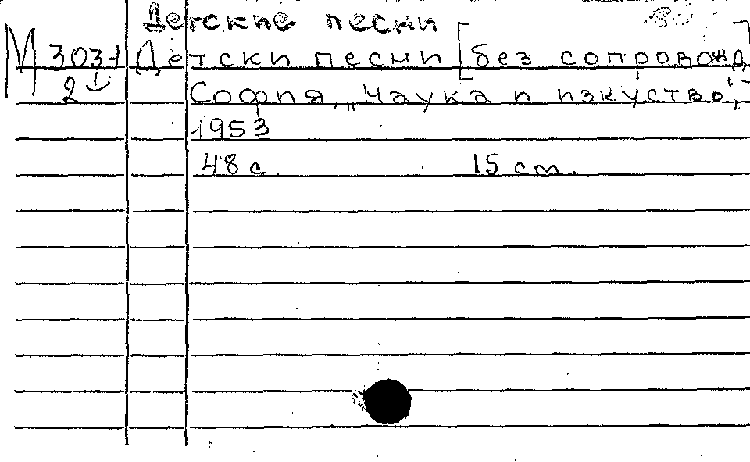 Детские песни
М 3031 Детски песни [без сопровожд.]
2 София, "Наука и изкуство",
1953
48 с. 15 cm.